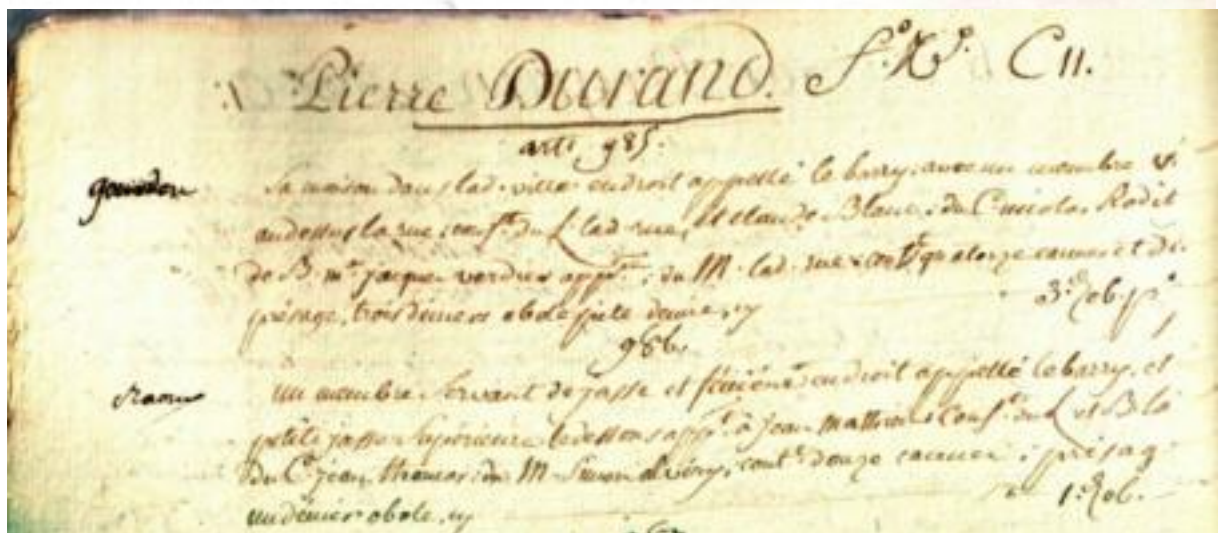 Pierre Durand. f.º X.º C 11.
arti 985.
Sa maison dans lad. ville endroit appellé le barry, avec un membre
au dessus la rue, conf.t du L lad. rue, et Claude Blanc, du C nicolas Rodil
de B m.e jacques verdier app.t, du M. lad. rue, cont.t quatorze cannes et di.
présage, trois deniers obole pite demie, cy 3.d ob. p.e
986.
un membre servant de jasse et endroit appellé le barry, et
petite jasse supérieure le dessous app.t à jean conf.t du L et B la
du C. jean du M. cont.t douze cannes, présag
un dénier obole, cy 1.d ob.